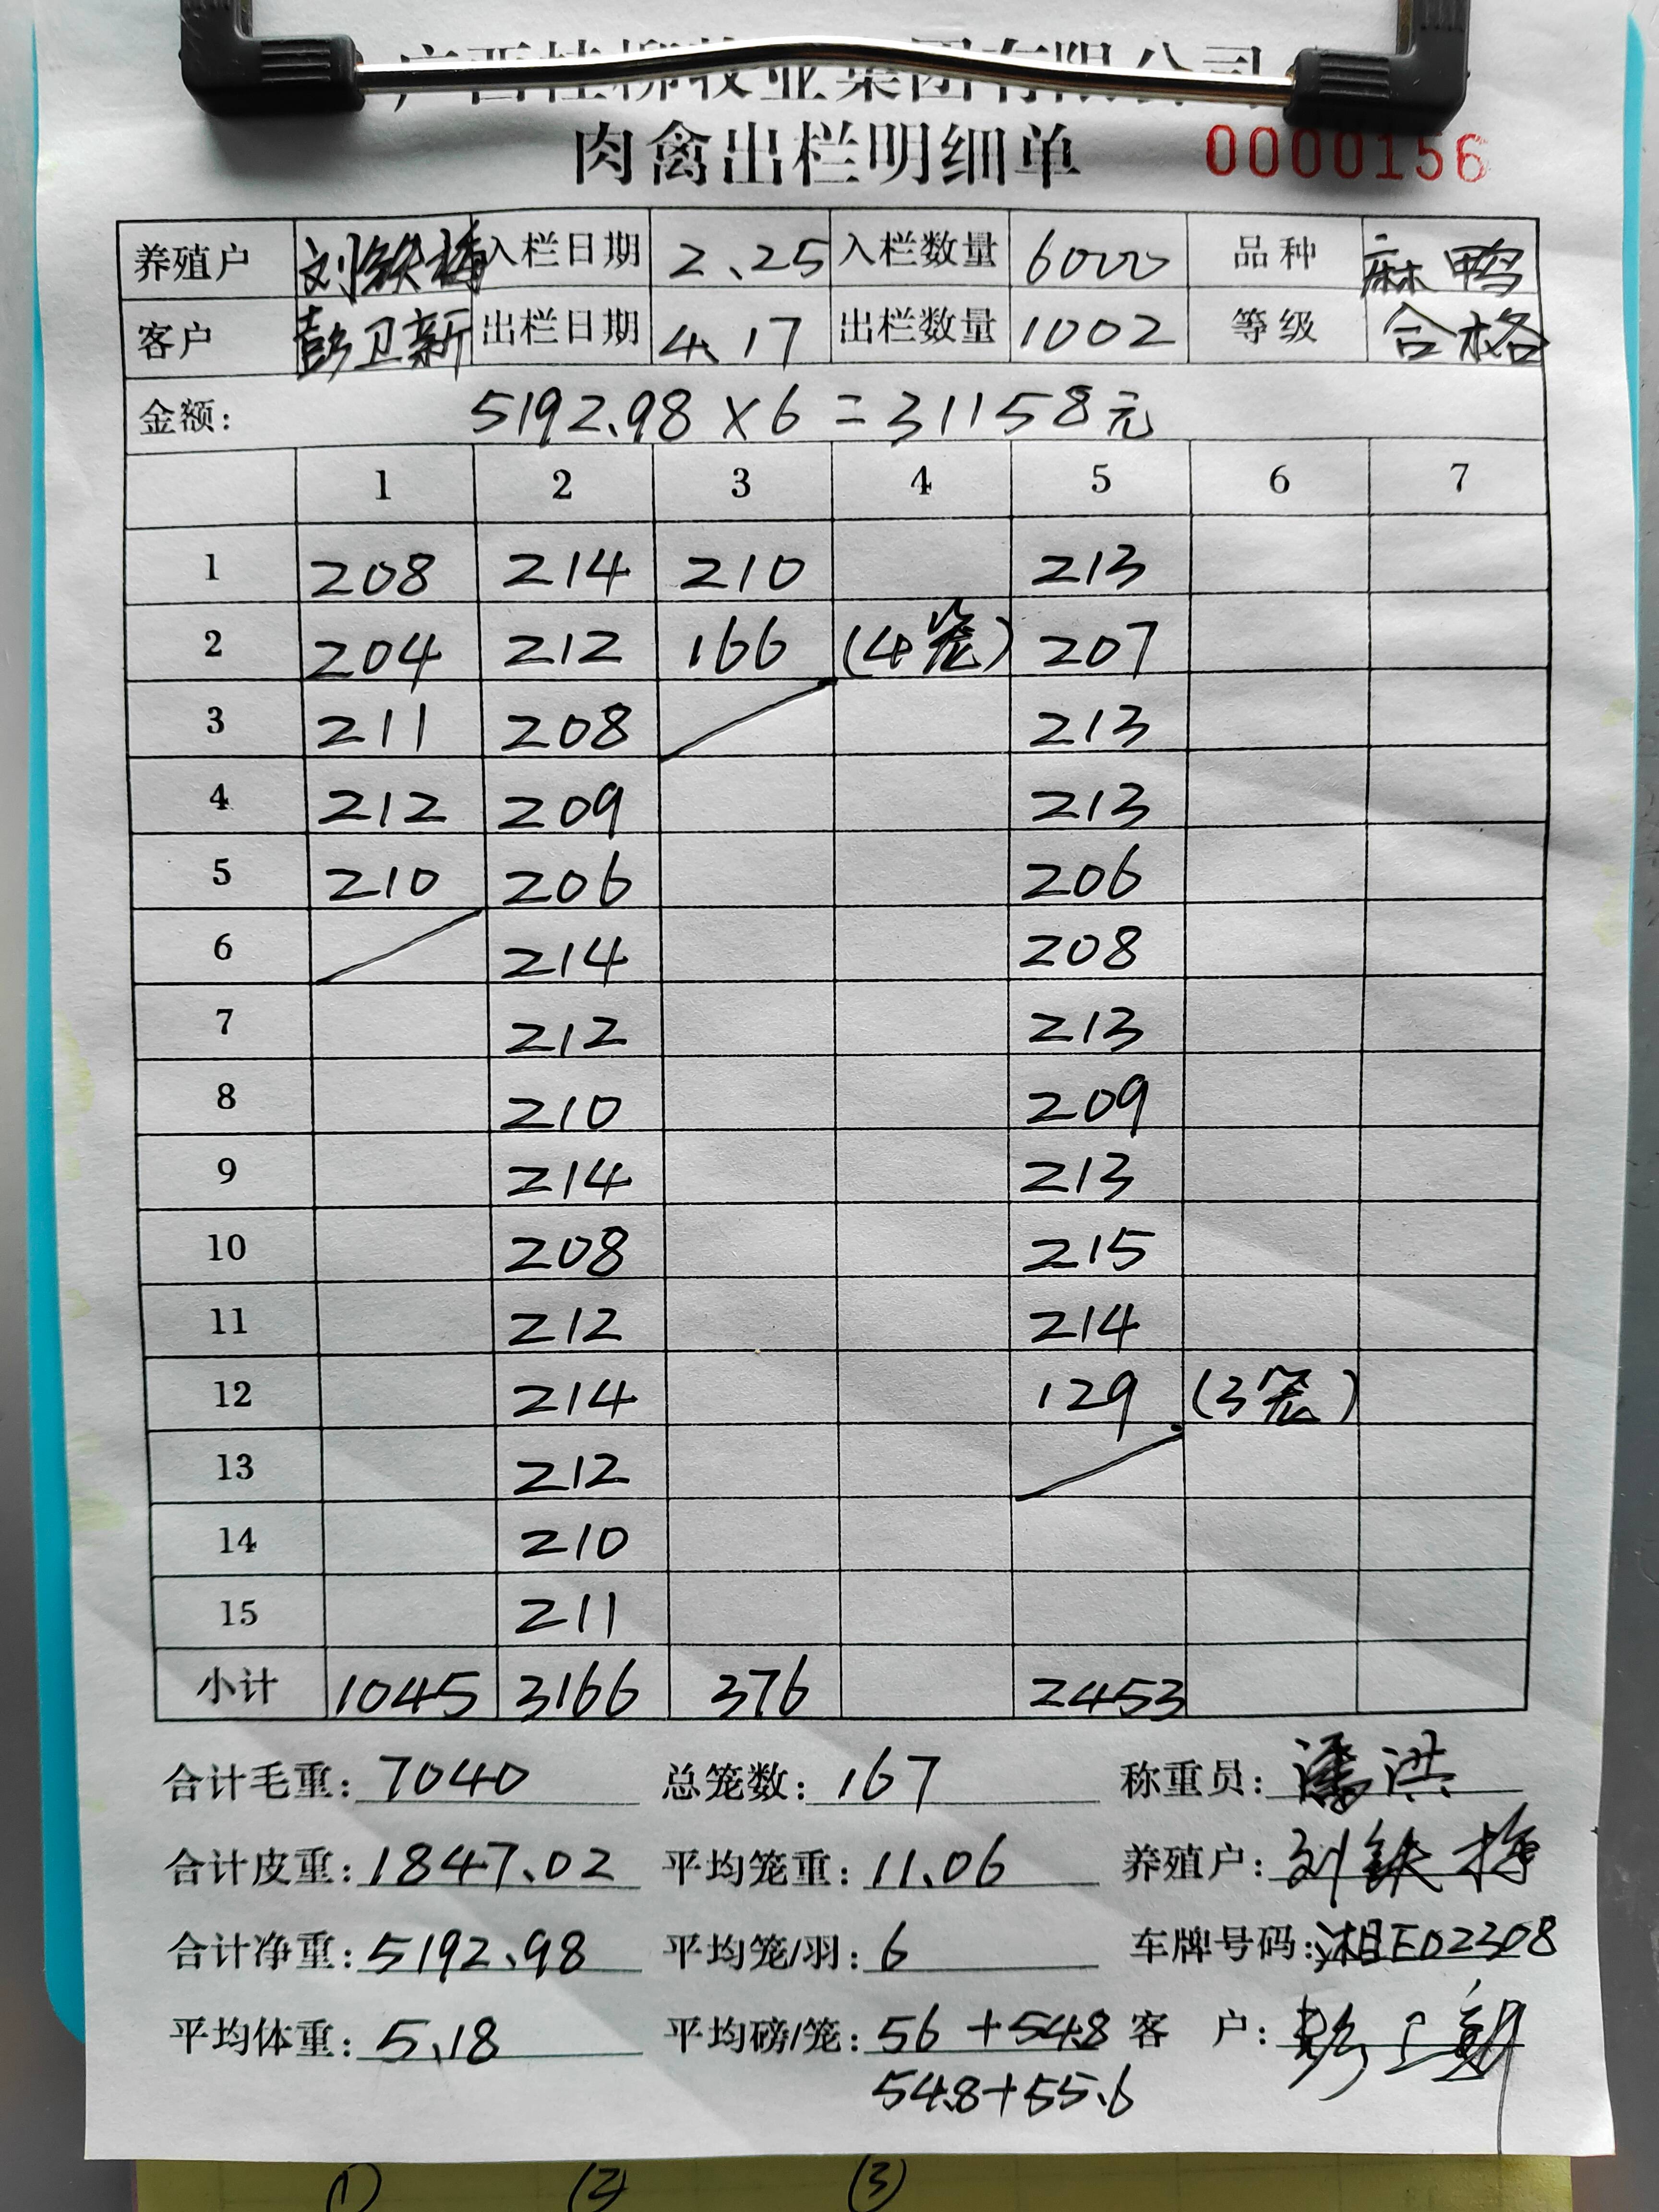 广西桂柳牧业集团有限公司
肉禽出栏明细单 0000156
养殖户 刘铁梅 入栏日期 2.25 入栏数量 6000 品种 麻鸭
客户 彭卫新 出栏日期 4.17 出栏数量 1002 等级 合格
金额: 5192.98×6=31158元
1 2 3 4 5 6 7
1 208 214 210 213
2 204 212 166 (4笼) 207
3 211 208 213
4 212 209 213
5 210 206 206
6 214 208
7 212 213
8 210 209
9 214 213
10 208 215
11 212 214
12 214 129 (3笼)
13 212
14 210
15 211
小计 1045 3166 376 2453
合计毛重: 7040 总笼数: 167 称重员: 潘洪
合计皮重: 1847.02 平均笼重: 11.06 养殖户: 刘铁梅
合计净重: 5192.98 平均笼/羽: 6 车牌号码: 湘E02308
平均体重: 5.18 平均磅/笼: 56+54.8 客 户: 彭卫新
54.8+55.6
(1) (2) (3)